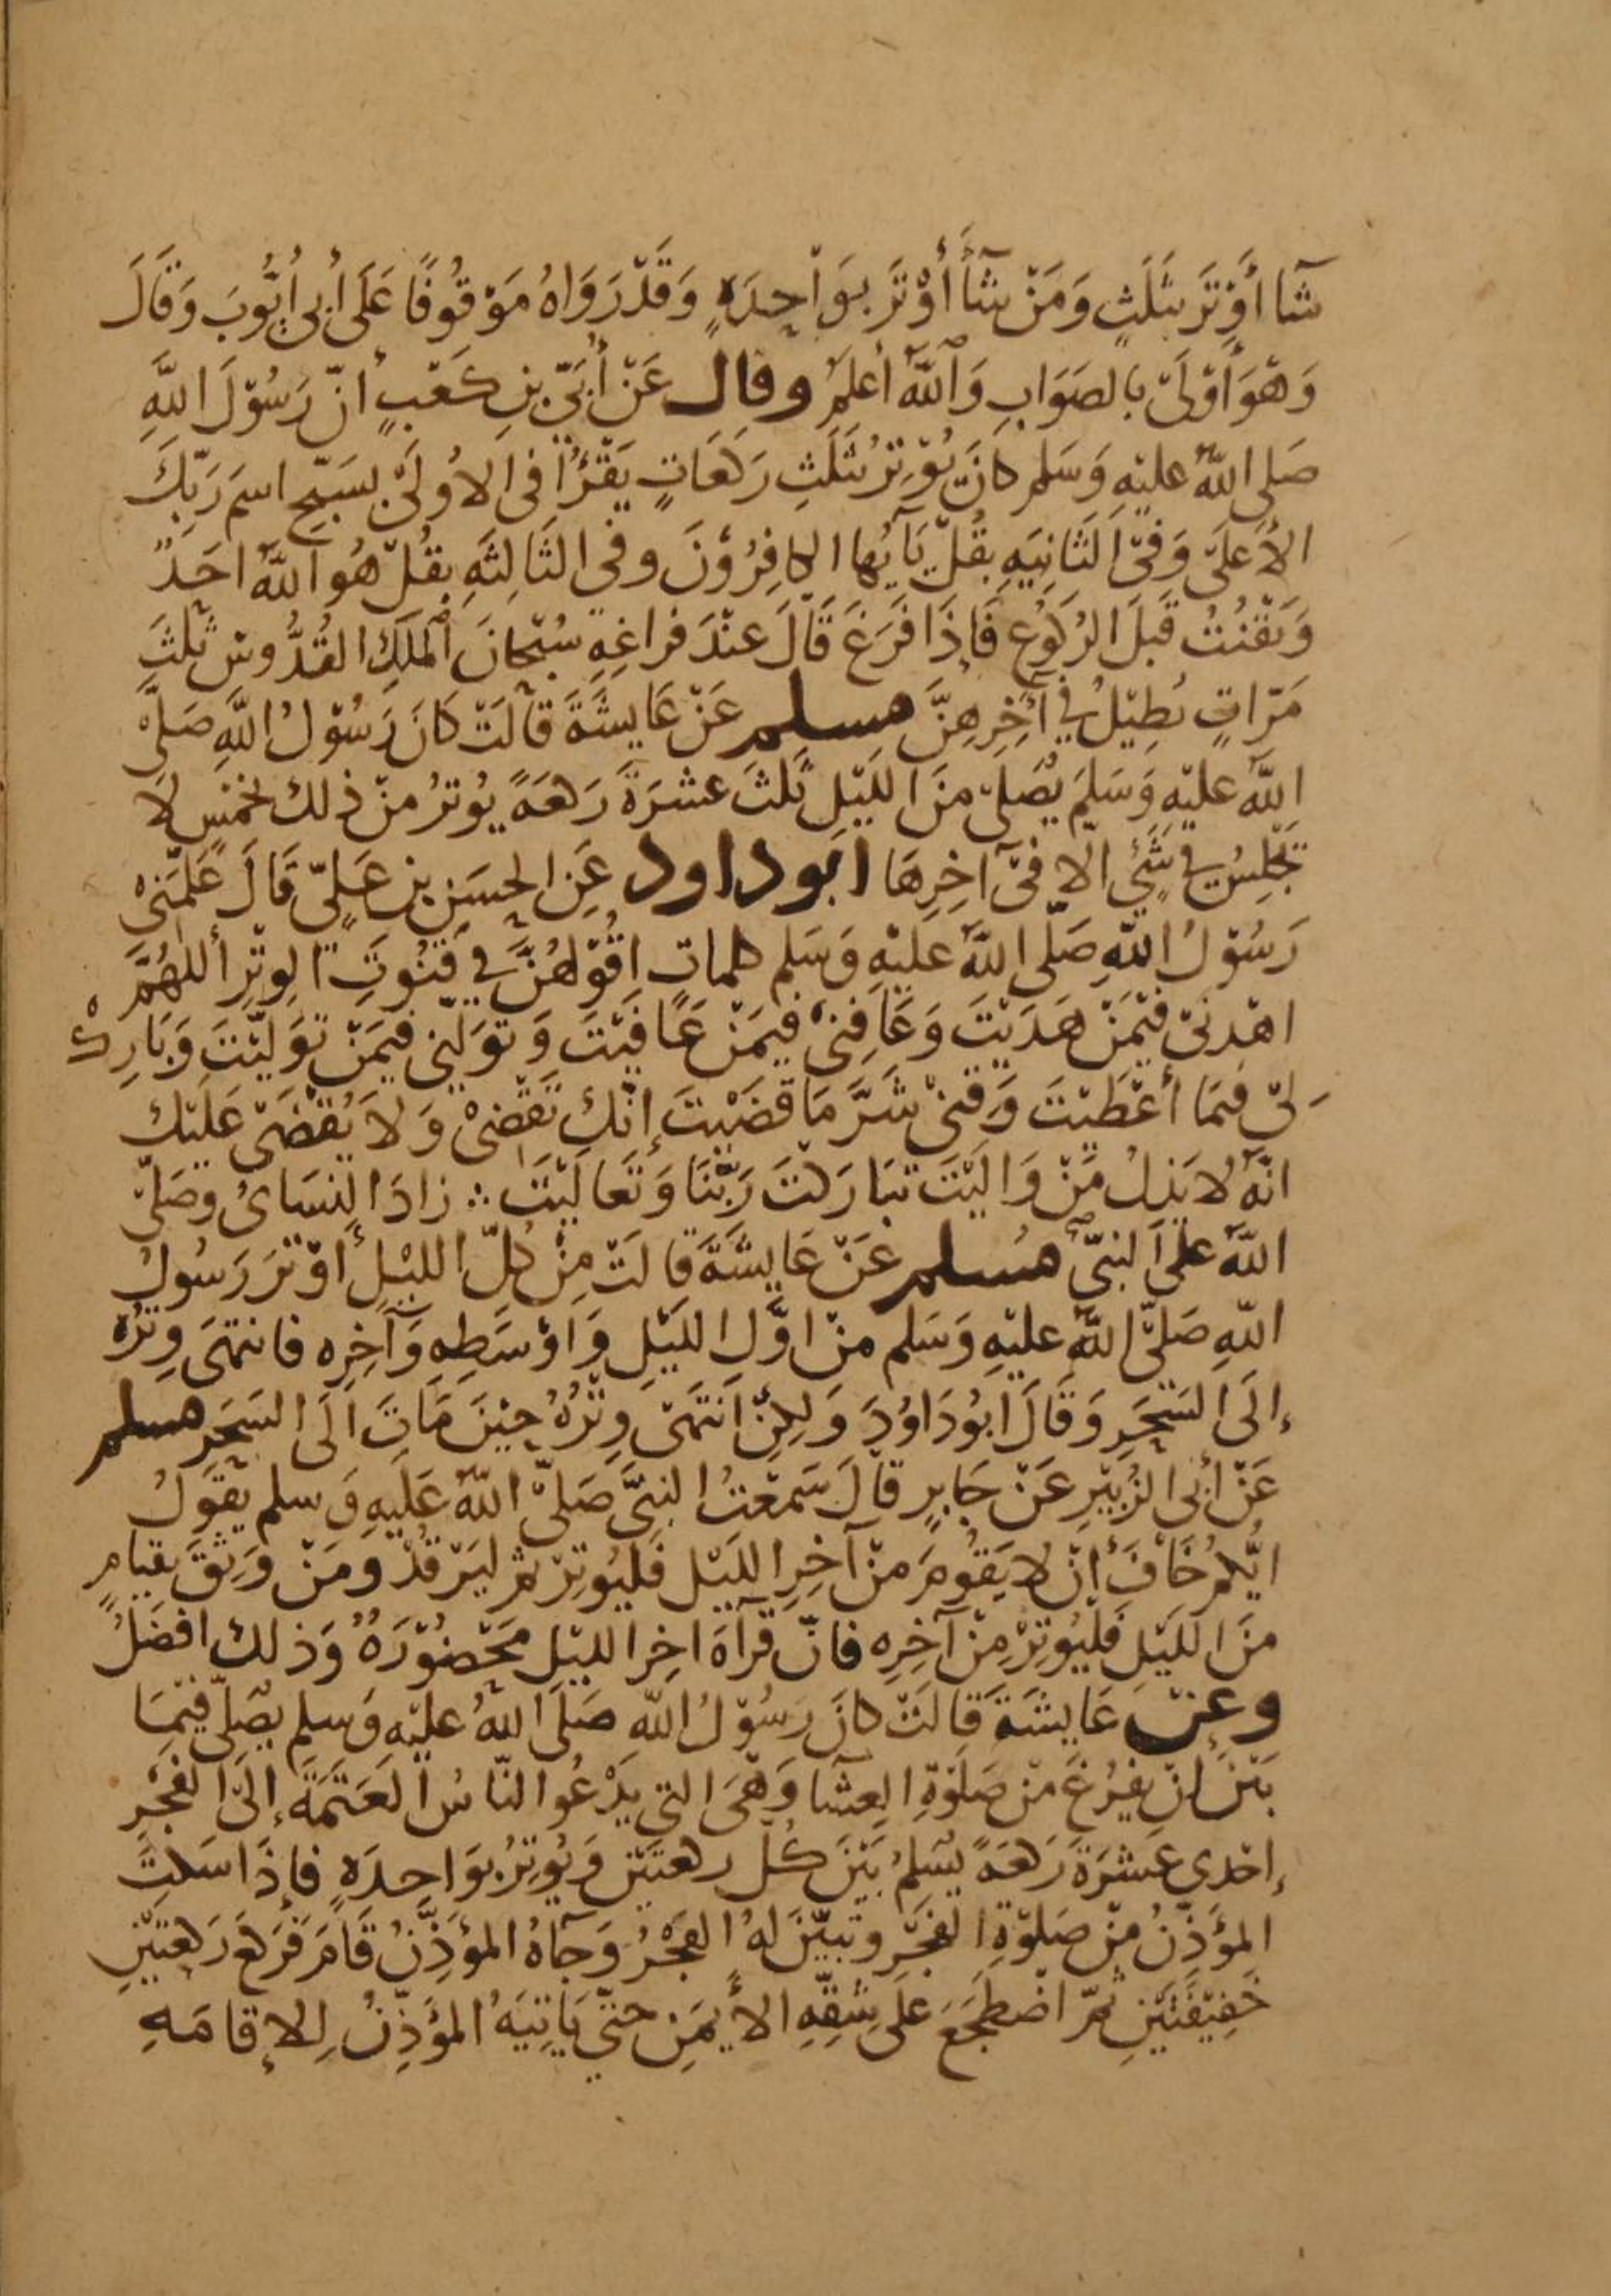 شَآا أَوْتَرَ بثَلَثٍ وَمَنْ شَآأَ أَوْتَرَ بوَاحِدَةٍ وَقَدْ رَوَاهُ مَوْقُوفًا عَلَى أبِى أيُّوبَ وَقَالَ
وَهْوَ أَوْلَىْ بالصَوَابِ وَاَللّٰهُ أعْلَمُ وقال عَنْ أُبَىّ بنِ كَعْبٍ أنّ رَسُوْلَ اللَّهِ
صَلى اللّٰهُ عليْهِ وَسَلم كانَ يُوْتِرُ بثَلَثِ رَكَعَاتٍ يَقْرَؤُا فى الاُولَىْ بسَبّحِ اسمَ رَبّكَ
الأعلَىْ وَفىْ الثَانِيَهِ بِقُلْ يَآيُها الكافِرُوْنَ وفى الثَالِثَهِ بِقُلْ هُو اللّٰهُ احَدٌ
وَيَقْنُتُ قَبلَ الرُكوُعِ فَإذَا فَرَغَ قَالَ عِنْدَ فراغِهِ سُبْحَانَ المَلِكِ القُدُّوسْ ثَلثَ
مَرّاتٍ يُطِيْلُ فِي آخِرِهِنَّ مسلم عَنْ عَايشَةَ قالَتْ كَانَ رَسُوْلُ اللَّهِ صَلىَّ
اللّٰهُ عليْهِ وَسَلمَ يُصَلىّ مِنَ اللَيْلِ ثَلثَ عشْرَةَ رَكعَةً يُوتِرُ منْ ذلك بخمْسٍ لَا
تجْلِسُ فِي شَئٍ الّا فىْ آخِرِهَا ابَوداود عَنِ الحسَنِ بنِ عَلىّ قَالَ عَلمَنِىْ
رَسُوْلُ اللّٰهِ صَلَى اللّٰهُ عليْهِ وَسَلم كلماتٍ اقُوْلهُنَّ فِي قنُوتِ الوِتْرِ أللهُمَّ
اهْدِنىْ فيْمَنْ هَدَيْتَ وَعَافِنىْ فيمَنْ عَافَيْتَ وَتَوَلّنِى فيمَنْ تَوَلّيْتَ وَبَارِكْ
لىْ فيمَا أعْطَيْتَ وَقِنىْ شَرَّ مَا قضَيْتَ إنّكَ تَقْضِىْ وَلاَ يُقْضَىْ عَلَيْك
انّهُ لا يَذِلُ مَنْ وَالَيْتَ تبَارَكْتَ رَبَّنَا وَتَعَالَيْتَ ∴ زادَ النسَاىُ وصَلىّ
اللّٰهُ على النبىّ مُسلم عَنْ عَايشَةَ قالَتْ مِنْ كُلّ الليْلِ أوْتَرَ رَسُولُ
اللّٰهِ صَلىّ اللّٰهُ عليْهِ وَسَلم منْ اوَّلِ الليْلِ وَاوْسَطِهِ وَآخِرِه فانتهىَ وِتْرُهُ
إلىَ السَحَرِ وَقَالَ ابُودَاوُدَ وَلكِنِ انتَهىْ وِتْرُهُ حِيْنَ مَاتَ الَى السَحَرِ مسلم
عَنْ أبى الزُبيْرِ عَنْ جَابِرٍ قالَ سَمعْتُ النبىَّ صَلىّ اللّٰهُ عَلَيهِ وَسلم يَقُولُ
ايُّكمُ خَافَ أنْ لا يَقُومَ منْ آخِرِ الليْل فليُوتِرْ ثم ليَرْقُدْ ومَنْ وَثِقَ بقيَامٍ
منَ الليْلِ فليُوتِرْ مِنْ آخِرِه فانّ قرآةَ اخِرِ الليْلِ مَحْضُوْرَةُ وَذلك افضَلُ
وعنْ عَايشَةَ قَالَتْ كانَ رَسُوْلُ اللّٰه صَلَى اللّٰهُ عليْهِ وَسلم يصَلىّ فيْمَا
بَيْنَ انْ يفرُغَ منْ صَلَوْةِ العِشَآا وَهْىَ التى يَدْعُوا النّاسُ العَتَمَةَ إلىَ الفَجْرِ
إحْدى عشْرَةَ رَكعَةً يُسَلمُ بَيْنَ كُلّ ركعتَيْنِ وَيُوتِرُ بوَاحِدَةٍ فإذَا سَكتَ
المؤَذِّنُ مِنْ صَلوْةِ الفَجْرِ وتبيّنَ لهُ الفَجْرُ وَجَآهُ المؤَذِّنُ قَامَ فرَكعَ رَكعتَيْنِ
خَفِيْفَتَيْنِ ثمّ اضْطجَعَ عَلىَ شقِّهِ الأيمَنِ حتىّ يَاتِيَهُ المؤَذِّنُ لِلاِقامَهِ